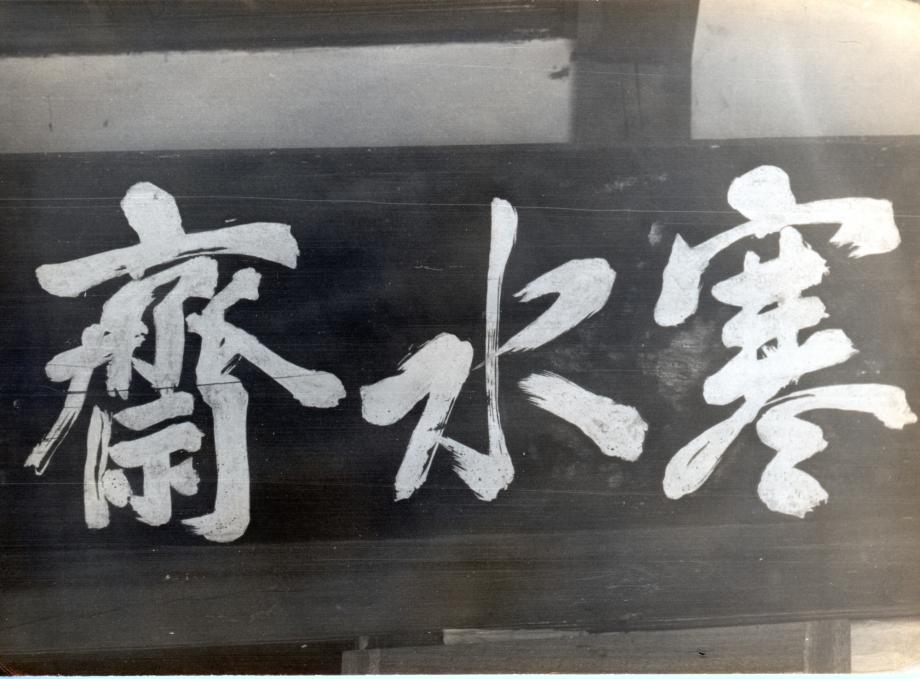 寒水齋